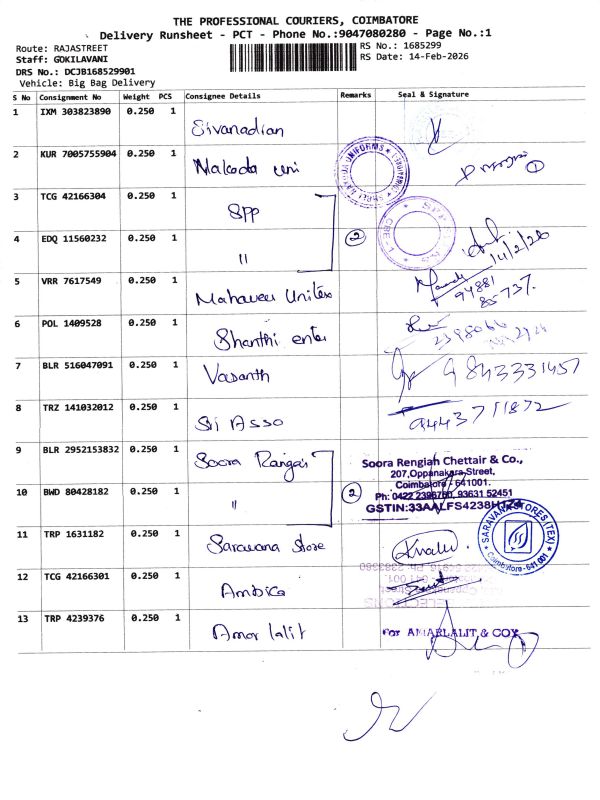 THE PROFESSIONAL COURIERS, COIMBATORE
Delivery Runsheet - PCT - Phone No.:9047080280 - Page No.:1
Route: RAJASTREET
RS No.: 1685299
Staff: GOKILAVANI
RS Date: 14-Feb-2026
DRS No.: DCJB168529901
Vehicle: Big Bag Delivery
S No Consignment No Weight PCS Consignee Details Remarks Seal & Signature
1 IXM 303823890 0.250 1 Sivanadian
2 KUR 7005755904 0.250 1 Makoda uni
3 TCG 42166304 0.250 1 SPP
4 EDQ 11560232 0.250 1 " 2 14/2/26
5 VRR 7617549 0.250 1 Mahaveer Unitex 94881
85737
6 POL 1409528 0.250 1 Shanthi enter
7 BLR 516047091 0.250 1 Vasanth 9843331457
8 TRZ 141032012 0.250 1 Sri Asso 9443711872
9 BLR 2952153832 0.250 1 Soora Rangai
Soora Rengiah Chettair & Co.,
207,Oppanakara Street,
Coimbatore - 641001.
10 BWD 80428182 0.250 1 " 2
Ph: 0422 2396760, 93631 52451
11 TRP 1631182 0.250 1 Saravana Store
SARAVANA STORES (TEX)
Coimbatore - 641 001
12 TCG 42166301 0.250 1 Ambica
13 TRP 4239376 0.250 1 Amar lalit
For AMARLALIT & COY